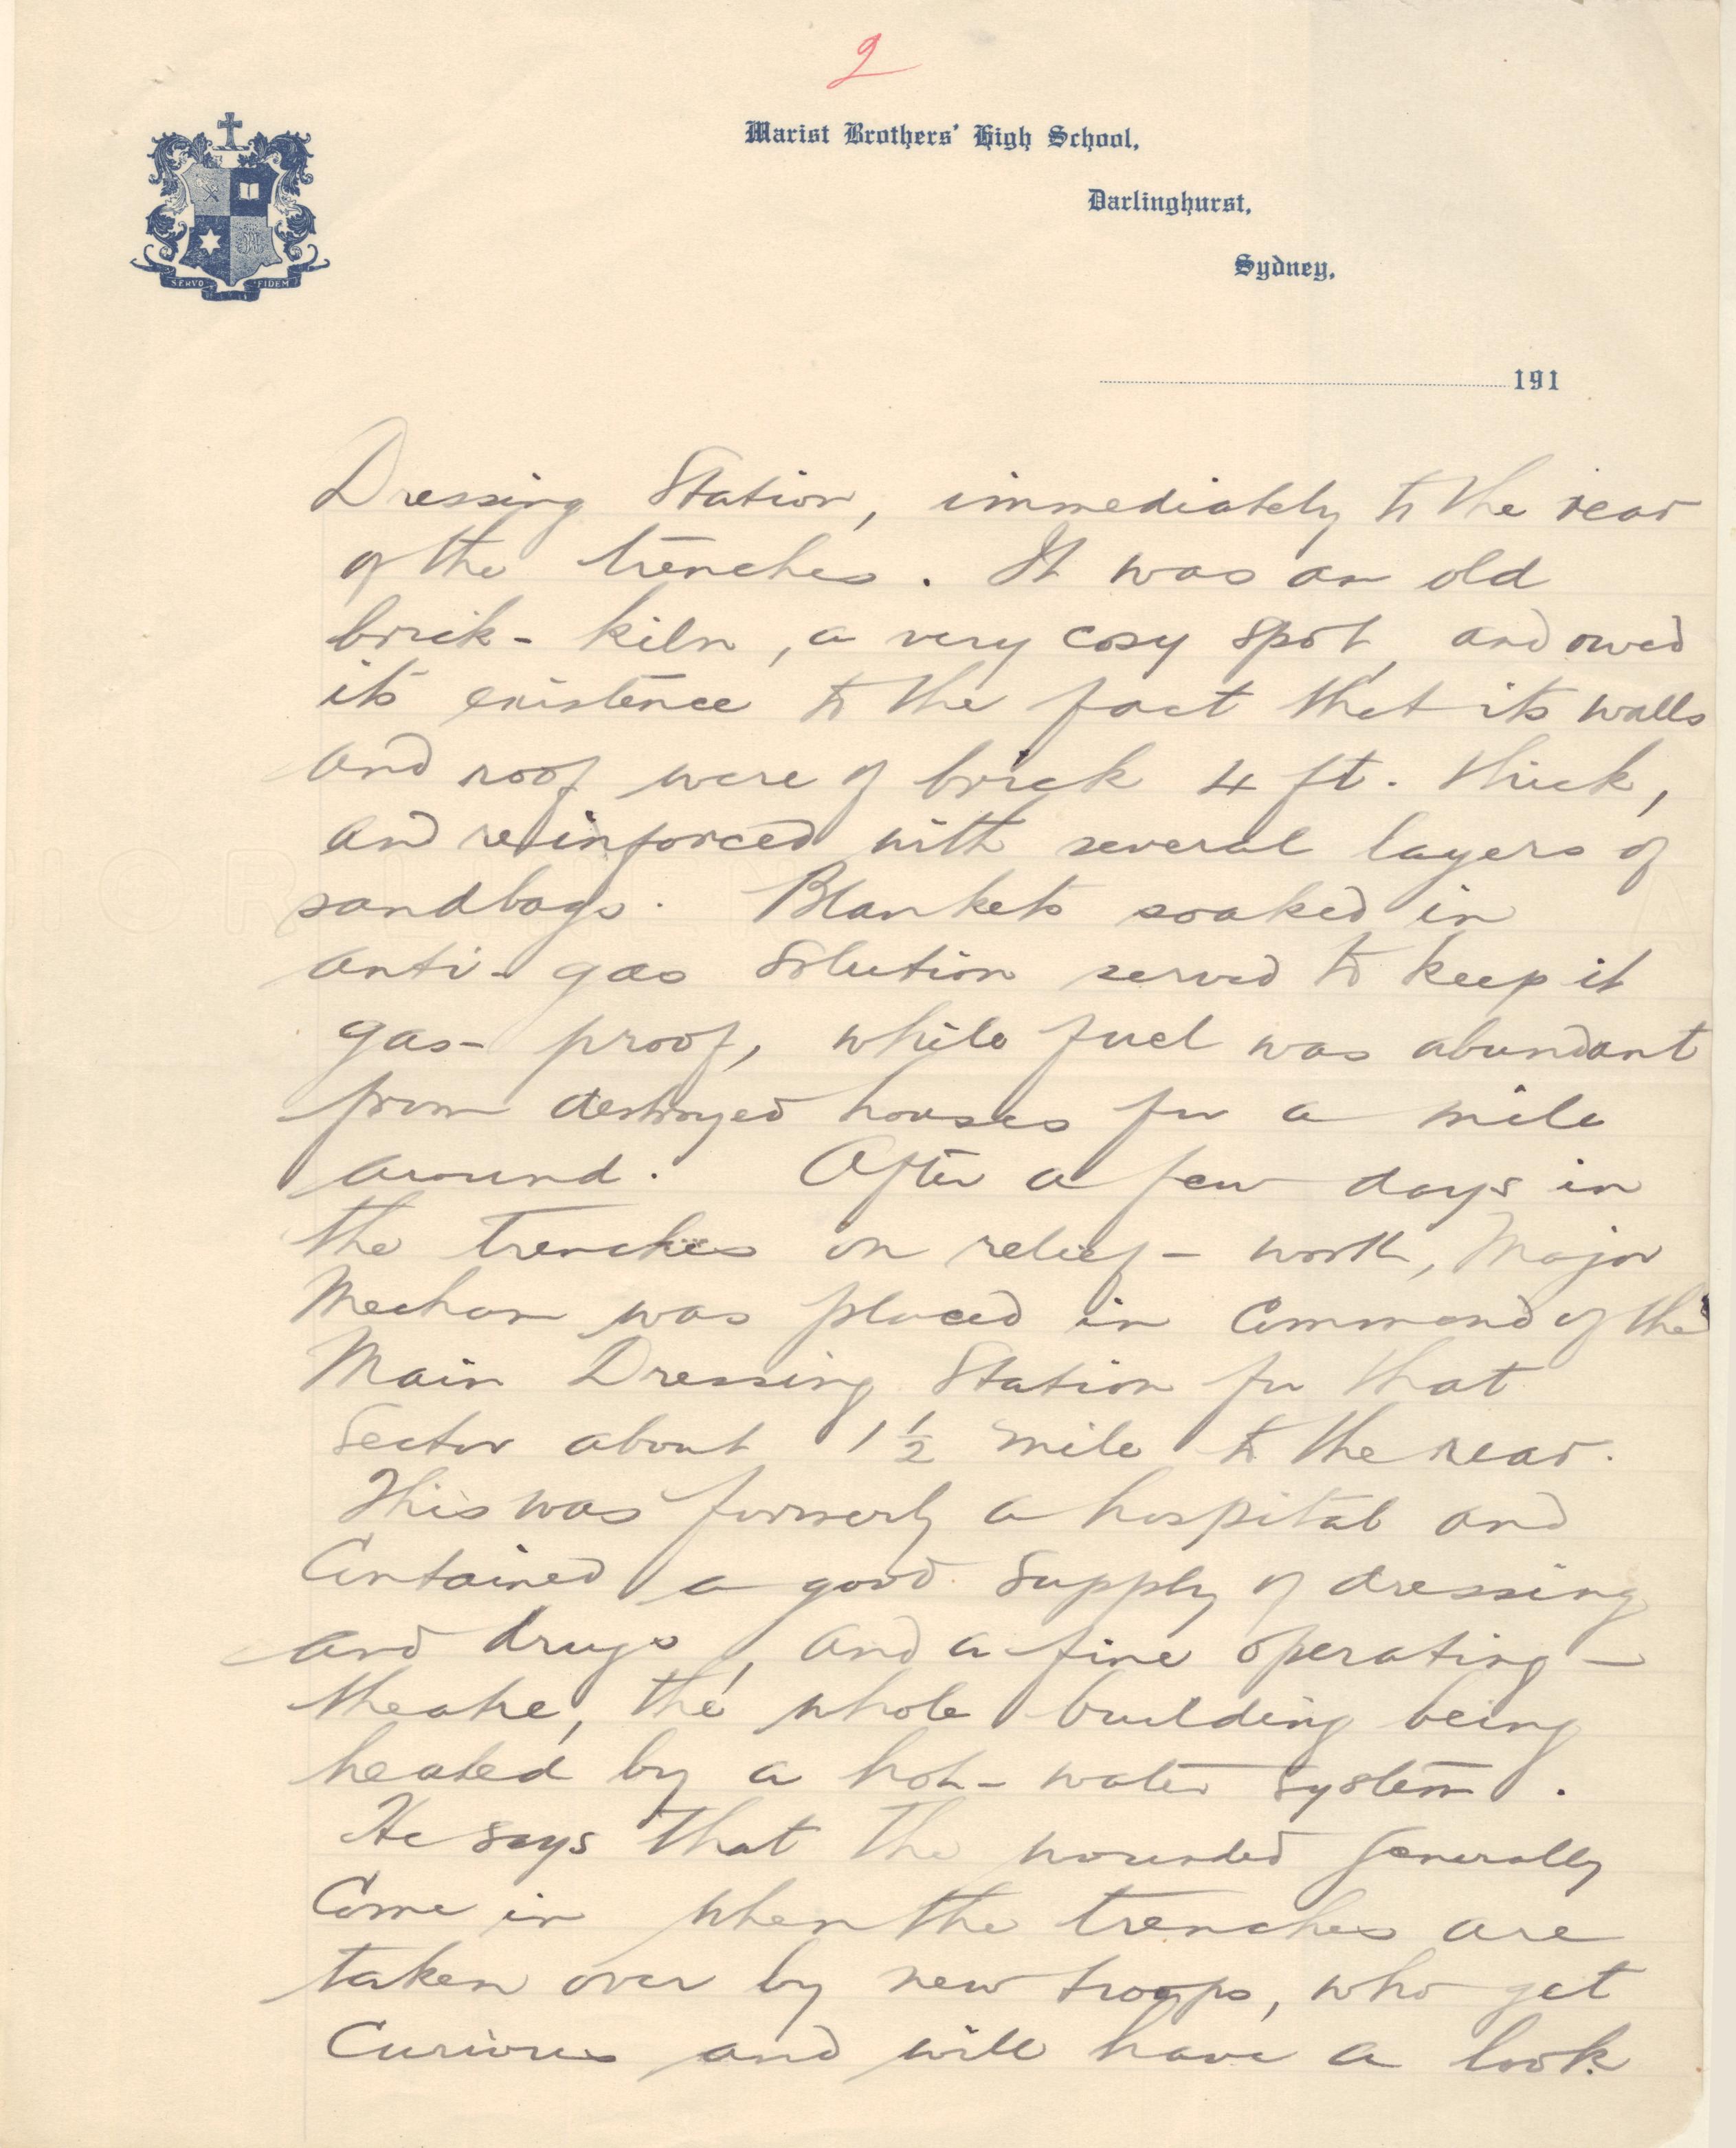 2
Marist Brothers' High School,
Darlinghurst,
Sydney,
191
SERVO FIDEM
Dressing Station, immediately to the rear
of the trenches. It was an old
brick-kiln, a very cosy spot, and owed
its existence to the fact that its walls
and roof were of brick 4 ft. thick,
and reinforced with several layers of
sandbags. Blankets soaked in
anti-gas solution served to keep it
gas-proof, while fuel was abundant
from destroyed houses for a mile
around. After a few days in
the trenches on relief-work, Major
Meehan was placed in Command of the
Main Dressing Station for that
Sector about 1½ mile to the rear.
This was formerly a hospital and
Contained a good supply of dressing
and drugs, and a fine operating-
theatre, the whole building being
heated by a hot-water system.
He says that the wounded generally
Come in when the trenches are
taken over by new troops, who get
Curious and will have a look